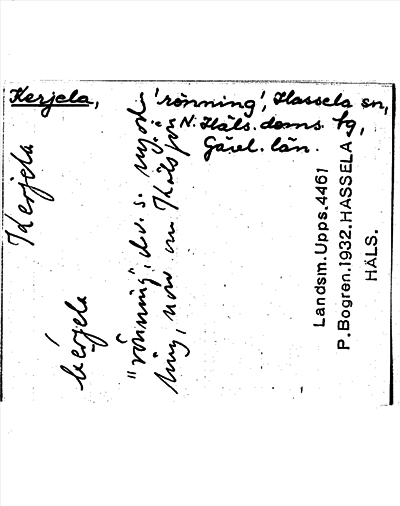 Kerjela, 'rönning', Hassela sn,
N. Häls. doms. hg,
Gävl. län.
Kerjela
kérjela
"rönning", d.v.s. nyod-
ling, now om
Landsm. Upps. 4461
P. Bogren. 1932. HASSELA
HÄLS.